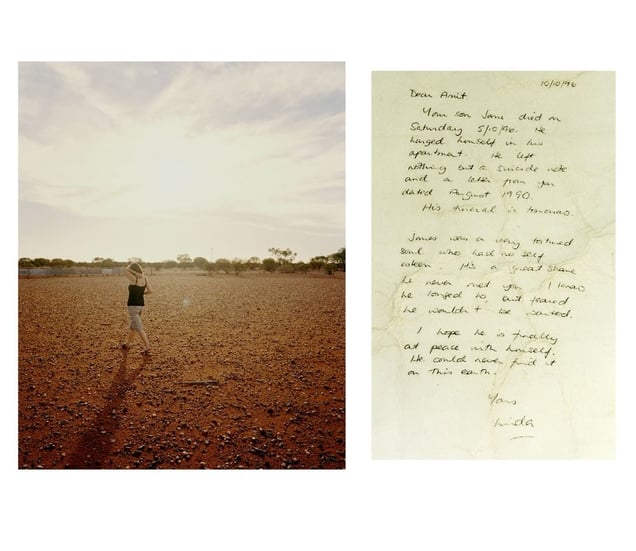 10/10/96
Dear Amit.
Your son Jame died on
Saturday 5/10/96. He
hanged himself in his
apartment. He left
nothing but a suicide note
and a letter from you
dated August 1990.
His funeral is tomorrow.
James was a very tortured
soul who had no self
esteem. It's a great shame
he never met you. I know
he longed to, but feared
he wouldn't be wanted.
I hope he is finally
at peace with himself.
He could never find it
on this earth.
Yours
Linda